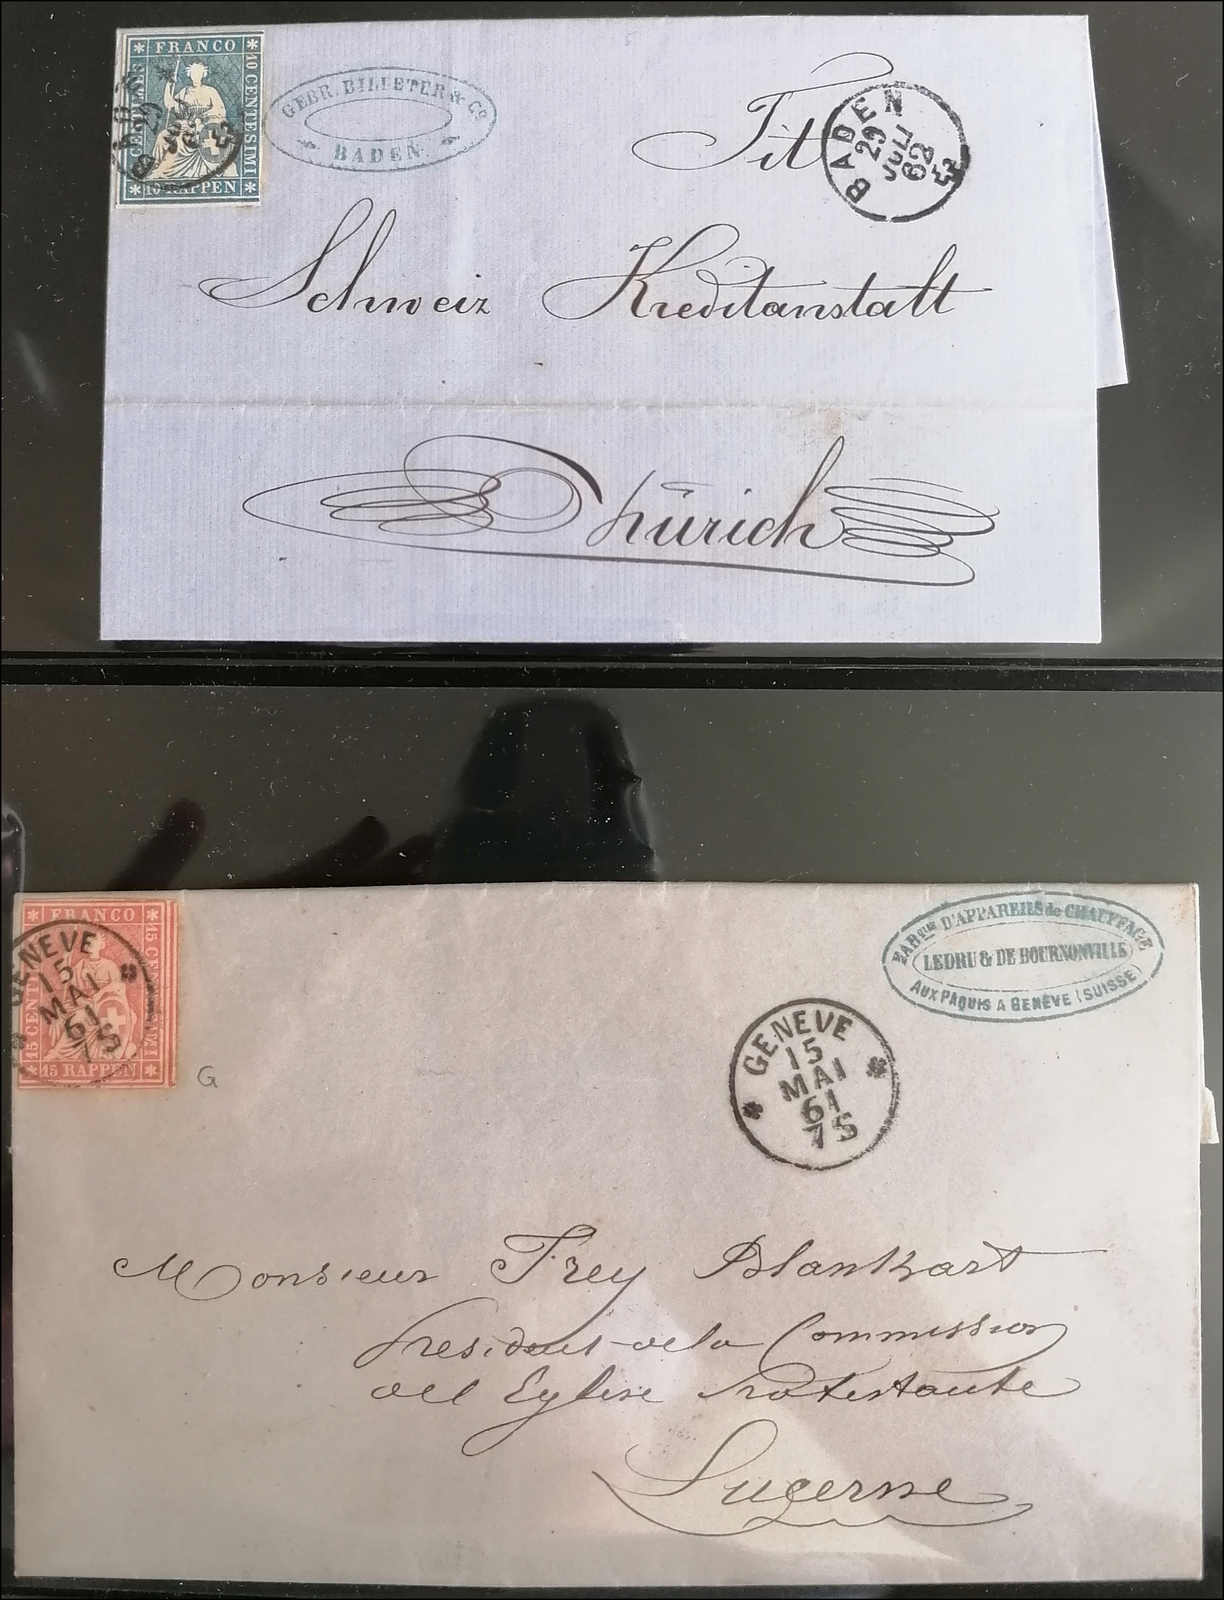 FRANCO
10 CENTESIMI
10 RAPPEN
GEBR. BILLETER & Cº
BADEN
BADEN
29
JULI
62
Tit
Schweiz Kreditanstalt
Zürich
FRANCO
15 CENTESIMI
15 RAPPEN
GENEVE
15
MAI
61
7 S
G
FABque D'APPAREILS de CHAUFFAGE
LEDRU & DE BOURNONVILLE
AUX PAQUIS A GENÈVE (SUISSE)
GENEVE
15
MAI
61
7 S
Monsieur Frey Blankhart
President de la Commission
de l Eglise Protestante
Lucerne